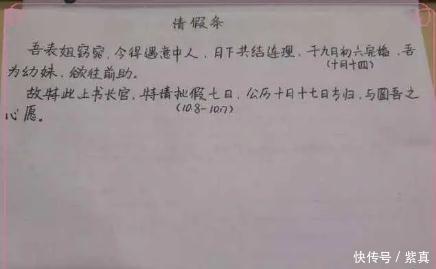 请假条
吾表姐窈窕，今得遇意中人，月下共结连理，于九月初六完婚，吾
(十月十四)
为幼妹，欲往前助。
故特此上书长官，特请批假七日，公历十月十七日当归，与圆吾之
(10.8-10.17)
心愿。
快传号/紫真